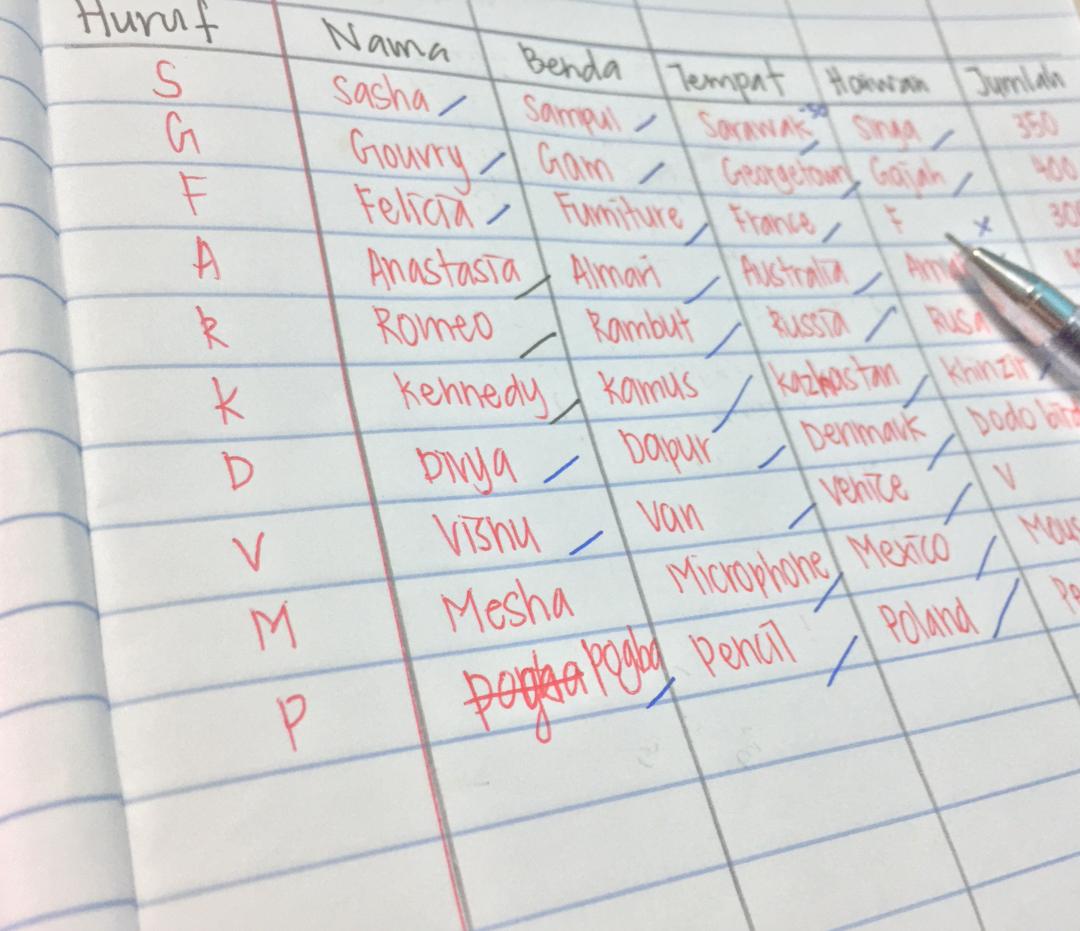 Huruf Nama Benda Tempat Haiwan Jumlah
S Sasha Sampul Sarawak -50 Singa 350
G Gouvry Gam Georgetown Gajah 400
F Felicia Furniture France F x
A Anastasia Almari Australia
R Romeo Rambut Russia Rusa
K Kennedy Kamus Kazhastan Khinzir
D Divya Dapur Denmark Dodo bird
V Vishu Van Venice V
M Mesha Microphone Mexico
P pogba Pogba Pencil Poland